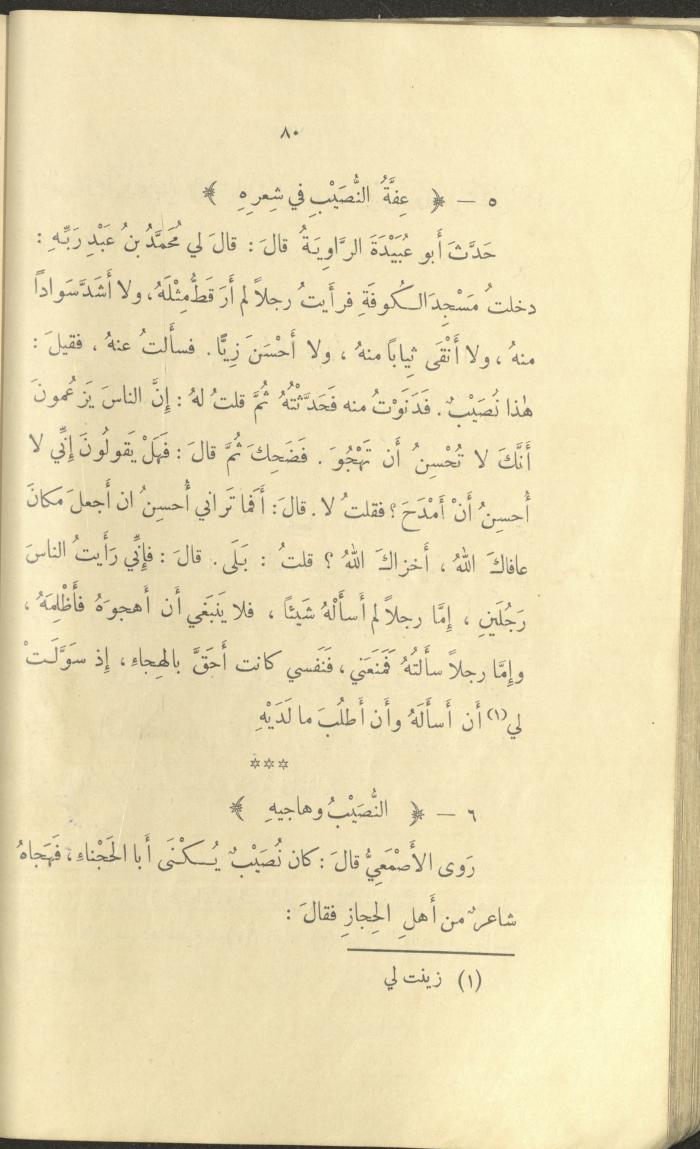 ٨٠
٥ — ﴿ عِفَّةُ النُّصَيْبِ في شِعرِهِ ﴾
حَدَّثَ أَبو عُبَيْدَةَ الرَّاوِيَةُ قالَ : قالَ لي مُحَمَّدُ بنُ عَبْدِ رَبِّهِ :
دخلتُ مَسْجِدَ الكُوفَةِ فرأَيتُ رجلاً لم أَرَ قَطُّ مِثْلَهُ، ولا أَشَدَّ سَواداً
منهُ ، ولا أَنْقَى ثِياباً منهُ ، ولا أَحْسَنَ زِيًّا . فسأَلتُ عنهُ ، فقيلَ :
هٰذا نُصَيْبٌ . فَدَنَوْتُ منه فَحَدَّثْتُهُ ثُمَّ قلتُ لهُ : إِنَّ الناسَ يَزْعُمونَ
أَنَّكَ لا تُحْسِنُ أَن تَهْجُوَ . فَضَحِكَ ثُمَّ قالَ : فَهَلْ يَقولُونَ إِنِّي لا
أُحسِنُ أَنْ أَمْدَحَ ؟ فقلتُ لا . قالَ : أَفَما تَراني أُحسِنُ ان أَجعلَ مَكانَ
عافاكَ اللهُ ، أَخزاكَ اللهُ ؟ قلتُ : بَلَى . قالَ : فإِنِّي رَأَيتُ الناسَ
رَجُلَينِ ، إِمَّا رجلاً لم أَسأَلْهُ شَيئاً ، فلا يَنبَغي أَن أَهجوَهُ فَأَظْلِمَهُ ،
وإِمَّا رجلاً سأَلتُهُ فَمَنَعَني ، فَنَفسي كانت أَحَقَّ بالهِجاءِ ، إِذ سَوَّلَتْ
لي(١) أَن أَسأَلَهُ وأَن أَطلُبَ ما لَدَيْهِ
***
٦ — ﴿ النُّصَيْبُ وهاجيهِ ﴾
رَوى الأَصْمَعِيُّ قالَ : كان نُصَيْبٌ يُكْنَى أَبا الحَجْناءِ ، فَهَجاهُ
شاعرٌ من أَهلِ الحِجازِ فقالَ :
(١) زينت لي